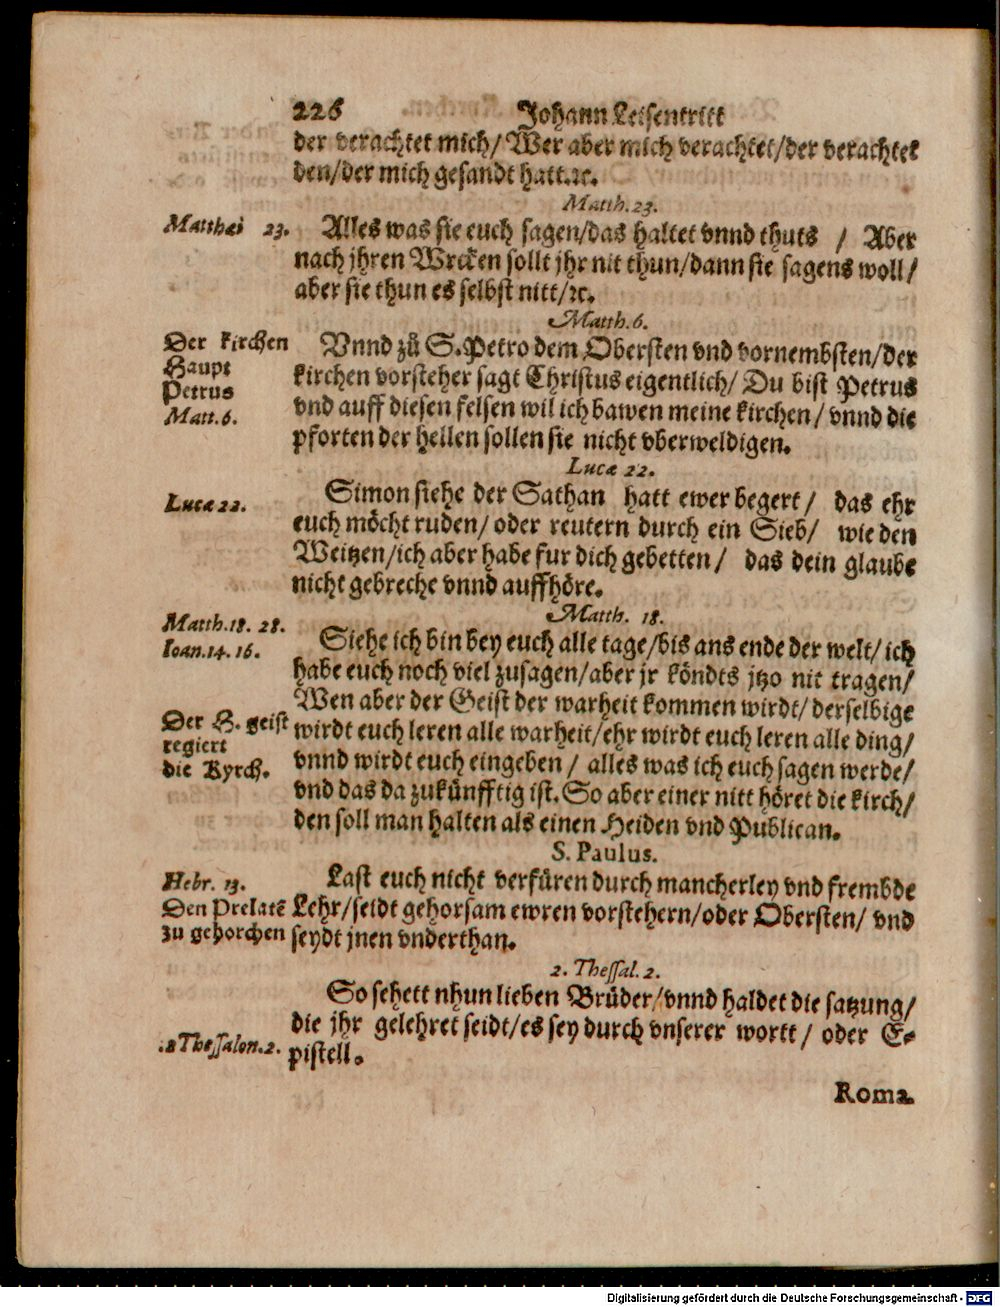 226 Johann Leisentritt
der verachtet mich/ Wer aber mich verachtet/der verachtet
den/der mich gesandt hatt.ꝛc.
Matth.23.
Matthæi 23.
Alles was sie euch sagen/das haltet vnnd thuts / Aber
nach jhren Wrcken sollt jhr nit thun/dann sie sagens woll/
aber sie thun es selbst nitt/ꝛc.
Matth.6.
Der kirchen
Haupt
Petrus
Matt.6.
Vnnd zů S.Petro dem Obersten vnd vornembsten/der
kirchen vorsteher sagt Christus eigentlich/ Du bist Petrus
vnd auff diesen felsen wil ich bawen meine kirchen/ vnnd die
pforten der hellen sollen sie nicht vberweldigen.
Lucæ 22.
Lucæ 22.
Simon siehe der Sathan hatt ewer begert/ das ehr
euch möcht ruden/ oder reutern durch ein Sieb/ wie den
Weitzen/ich aber habe fur dich gebetten/ das dein glaube
nicht gebreche vnnd auffhöre.
Matth. 18.
Matth.18. 28.
Ioan.14.16.
Siehe ich bin bey euch alle tage/bis ans ende der welt/ ich
habe euch noch viel zusagen/aber jr köndts jtzo nit tragen/
Wen aber der Geist der warheit kommen wirdt/ derselbige
Der H. geist
regiert
die Kyrch.
wirdt euch leren alle warheit/ehr wirdt euch leren alle ding/
vnnd wirdt euch eingeben / alles was ich euch sagen werde/
vnd das da zukünfftig ist. So aber einer nitt höret die kirch/
den soll man halten als einen Heiden vnd Publican.
S. Paulus.
Hebr. 13.
Den Prelatē
zu gehorchen
Last euch nicht verfüren durch mancherley vnd frembde
Lehr/seidt gehorsam ewren vorstehern/oder Obersten/ vnd
seydt jnen vnderthan.
2. Thessal. 2.
So sehett nhun lieben Brüder/vnnd haldet die satzung/
die jhr gelehret seidt/es sey durch vnserer wortt/ oder E⸗
.2 Thessalon.2.
pistell.
Roma.
Digitalisierung gefördert durch die Deutsche Forschungsgemeinschaft - DFG